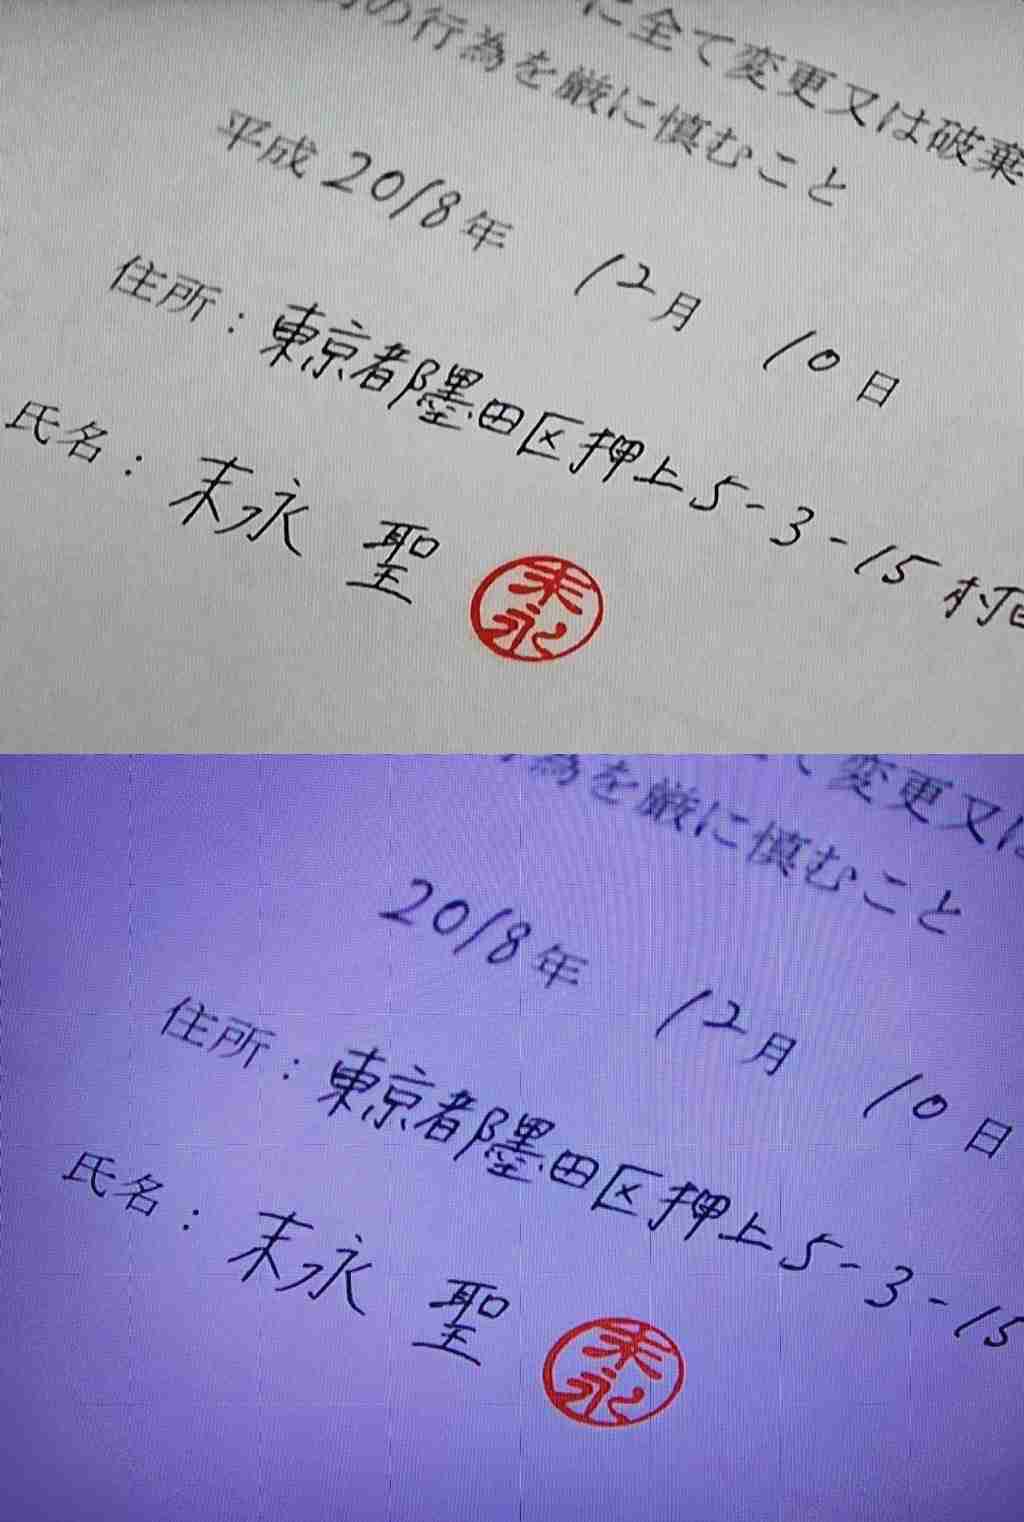 に全て変更又は破棄
の行為を厳に慎むこと
平成 2018年 12月 10日
住所：東京都墨田区押上5-3-15
氏名：末永 聖
末永
変更又は
為を厳に慎むこと
2018年 12月 10日
住所：東京都墨田区押上5-3-15
氏名：末永 聖
末永